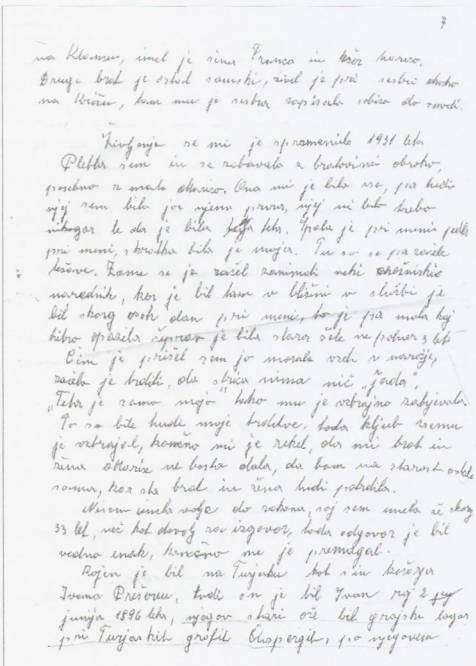 7
na Klancu, imel je sina Franca in hčer
Drugi brat je ostal samski, živel je pri sestri
na Križu, tam mu je sestra zapisala sobico do smrti.
Življenje se mi je spremenilo 1931 leta
Pletla sem in se zabavala z bratovimi otroki,
posebno z malo Ona mi je bila vse, pa tudi
njej sem bila jaz njena prva, njej ni bilo treba
nikogar le da je bila teta. Spala je pri meni, jedla
pri meni, skratka bila je moja. Tu so se pa začele
težave. Zame se je začel zanimati neki orožniški
narednik, ker je bil tam v bližini v službi je
bil skoraj vsak dan pri meni, to je pa mala kaj
hitro opazila čeprav je bila stara šele ne polnar 3 let
Čim je prišel sem jo morala vzeti v naročje,
začela je trditi, da strica nima nič „rada",
„Teta je samo moja" tako mu je vztrajno zabijevala.
To so bile hude moje trditve, toda kljub temu
je vztrajal, končno mi je rekel, da mi brat in
žena otroka ne bosta dala, da bom na starost ostala
sama, kar sta brat in žena tudi potrdila.
Nisem imela volje do zakona, saj sem imela že skoraj
33 let, več kot dovolj za izgovor, toda odgovor je bil
vedno enak, končno me je premagal.
Rojen je bil na Turjaku kot sin
Ivana tudi on je bil Ivan roj. 2
junija 1896 leta, njegov stari oče bil grajski
pri Turjaških grofih po njegovem